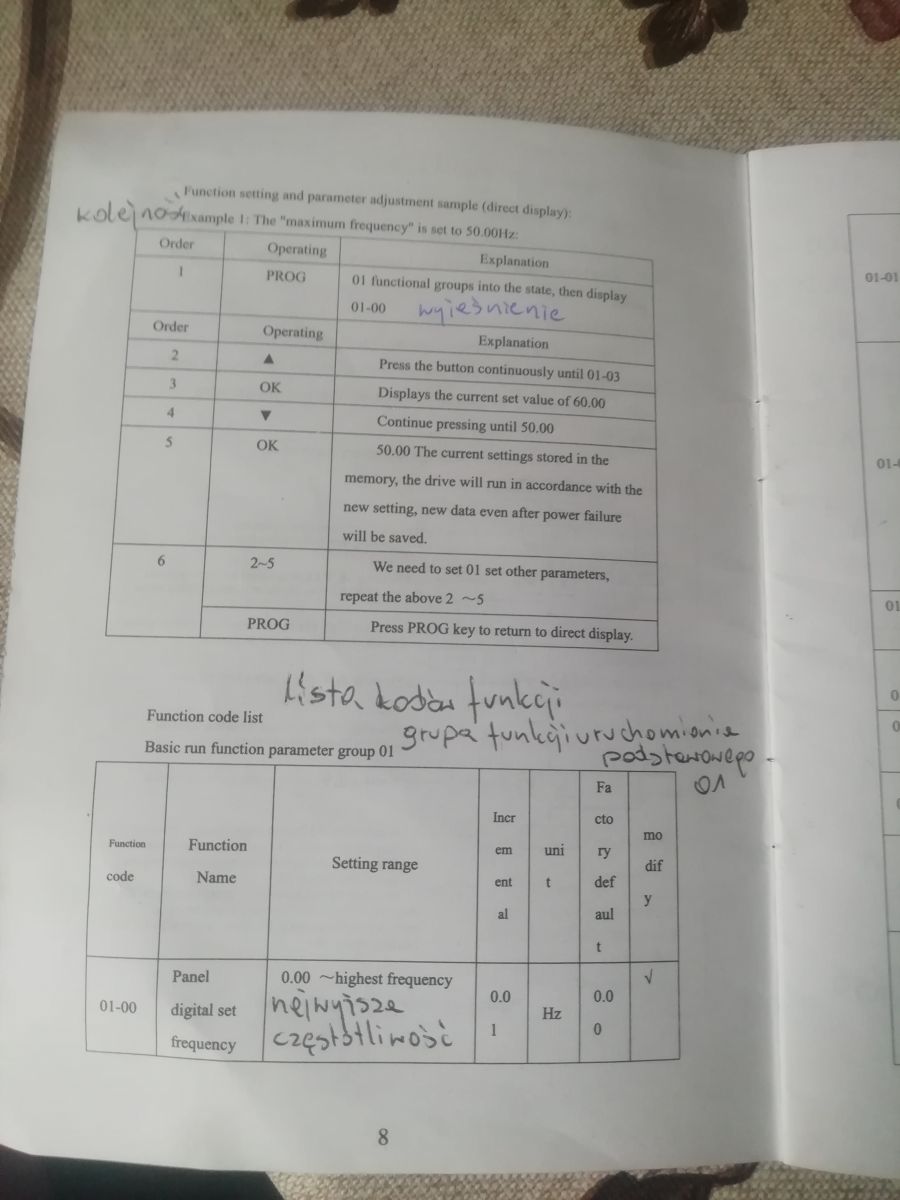 Function setting and parameter adjustment sample (direct display):
kolejność Example 1: The "maximum frequency" is set to 50.00Hz:
Order Operating Explanation
1 PROG 01 functional groups into the state, then display
01-00 wyjeśnienie
Order Operating Explanation
2 ▲ Press the button continuously until 01-03
3 OK Displays the current set value of 60.00
4 ▼ Continue pressing until 50.00
5 OK 50.00 The current settings stored in the
memory, the drive will run in accordance with the
new setting, new data even after power failure
will be saved.
6 2~5 We need to set 01 set other parameters,
repeat the above 2 ～5
PROG Press PROG key to return to direct display.
Lista kodów funkcji
Function code list
grupa funkcji uruchomienie
Basic run function parameter group 01
podstawowego
01
Function
code
Function
Name
Setting range
Incr
em
ent
al
uni
t
Fa
cto
ry
def
aul
t
mo
dif
y
01-00
Panel
digital set
frequency
0.00 ～highest frequency
nejwyższe
częstotliwość
0.0
1
Hz
0.0
0
√
8
01-01
01-
01
0
0